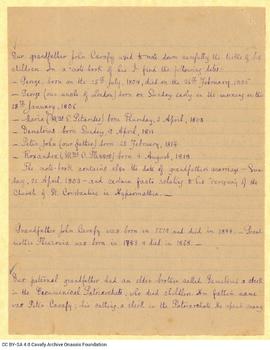 Our grandfather John Cavafy used to note down carefully the births of his
children. In a note-book of his I find the following data:
- George, born on the 15th July, 1804, died on the 26th February, 1805
- George (our uncle of London) born on Sunday early in the morning in the
18th January, 1806
- Maria (Mrs Pitarides) born Thursday, 2 April, 1808
- Demetrius born Sunday 9 April, 1811
- Peter John (our father) born 25 February, 1814
- Roxandra born 4 August, 1818
The note-book contains also the date of grandfather's marriage - Sun-
day, 25 April 1803 - and certain facts relating to his repairing of the
Church of St. Constantine in Hypsomatheia.
Grandfather John Cavafy was born in and died in 1844. -
mother was born in & died in 1865. -
Our paternal grandfather had an elder brother called a clerk in
the Oecumenical Patriarchate; who died childless. His father's name
was Peter Cavafy; his calling, a clerk in the Patriarchate. He spent many
CC BY-SA 4.0 Cavafy Archive Onassis Foundation